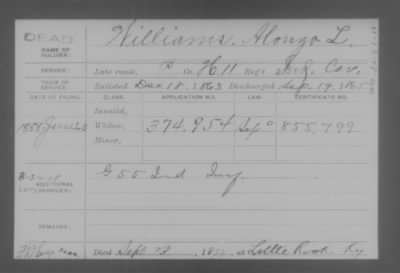 DEAD
Williams, Alonzo L.
NAME OF SOLDIER:
SERVICE:
Late rank, P Co. H, 11 Reg't Ind. Cav.
TERM OF SERVICE:
Enlisted Dec. 18, 1863 Discharged Sep. 19, 1865
DATE OF FILING.
CLASS.
APPLICATION NO.
LAW.
CERTIFICATE NO.
Invalid,
1888 June
Widow,
374,954
855,799
Minor,
ADDITIONAL SERVICES:
G 55 Ind Inf.
REMARKS:
Died Sept 1877, at Little Rock Ky